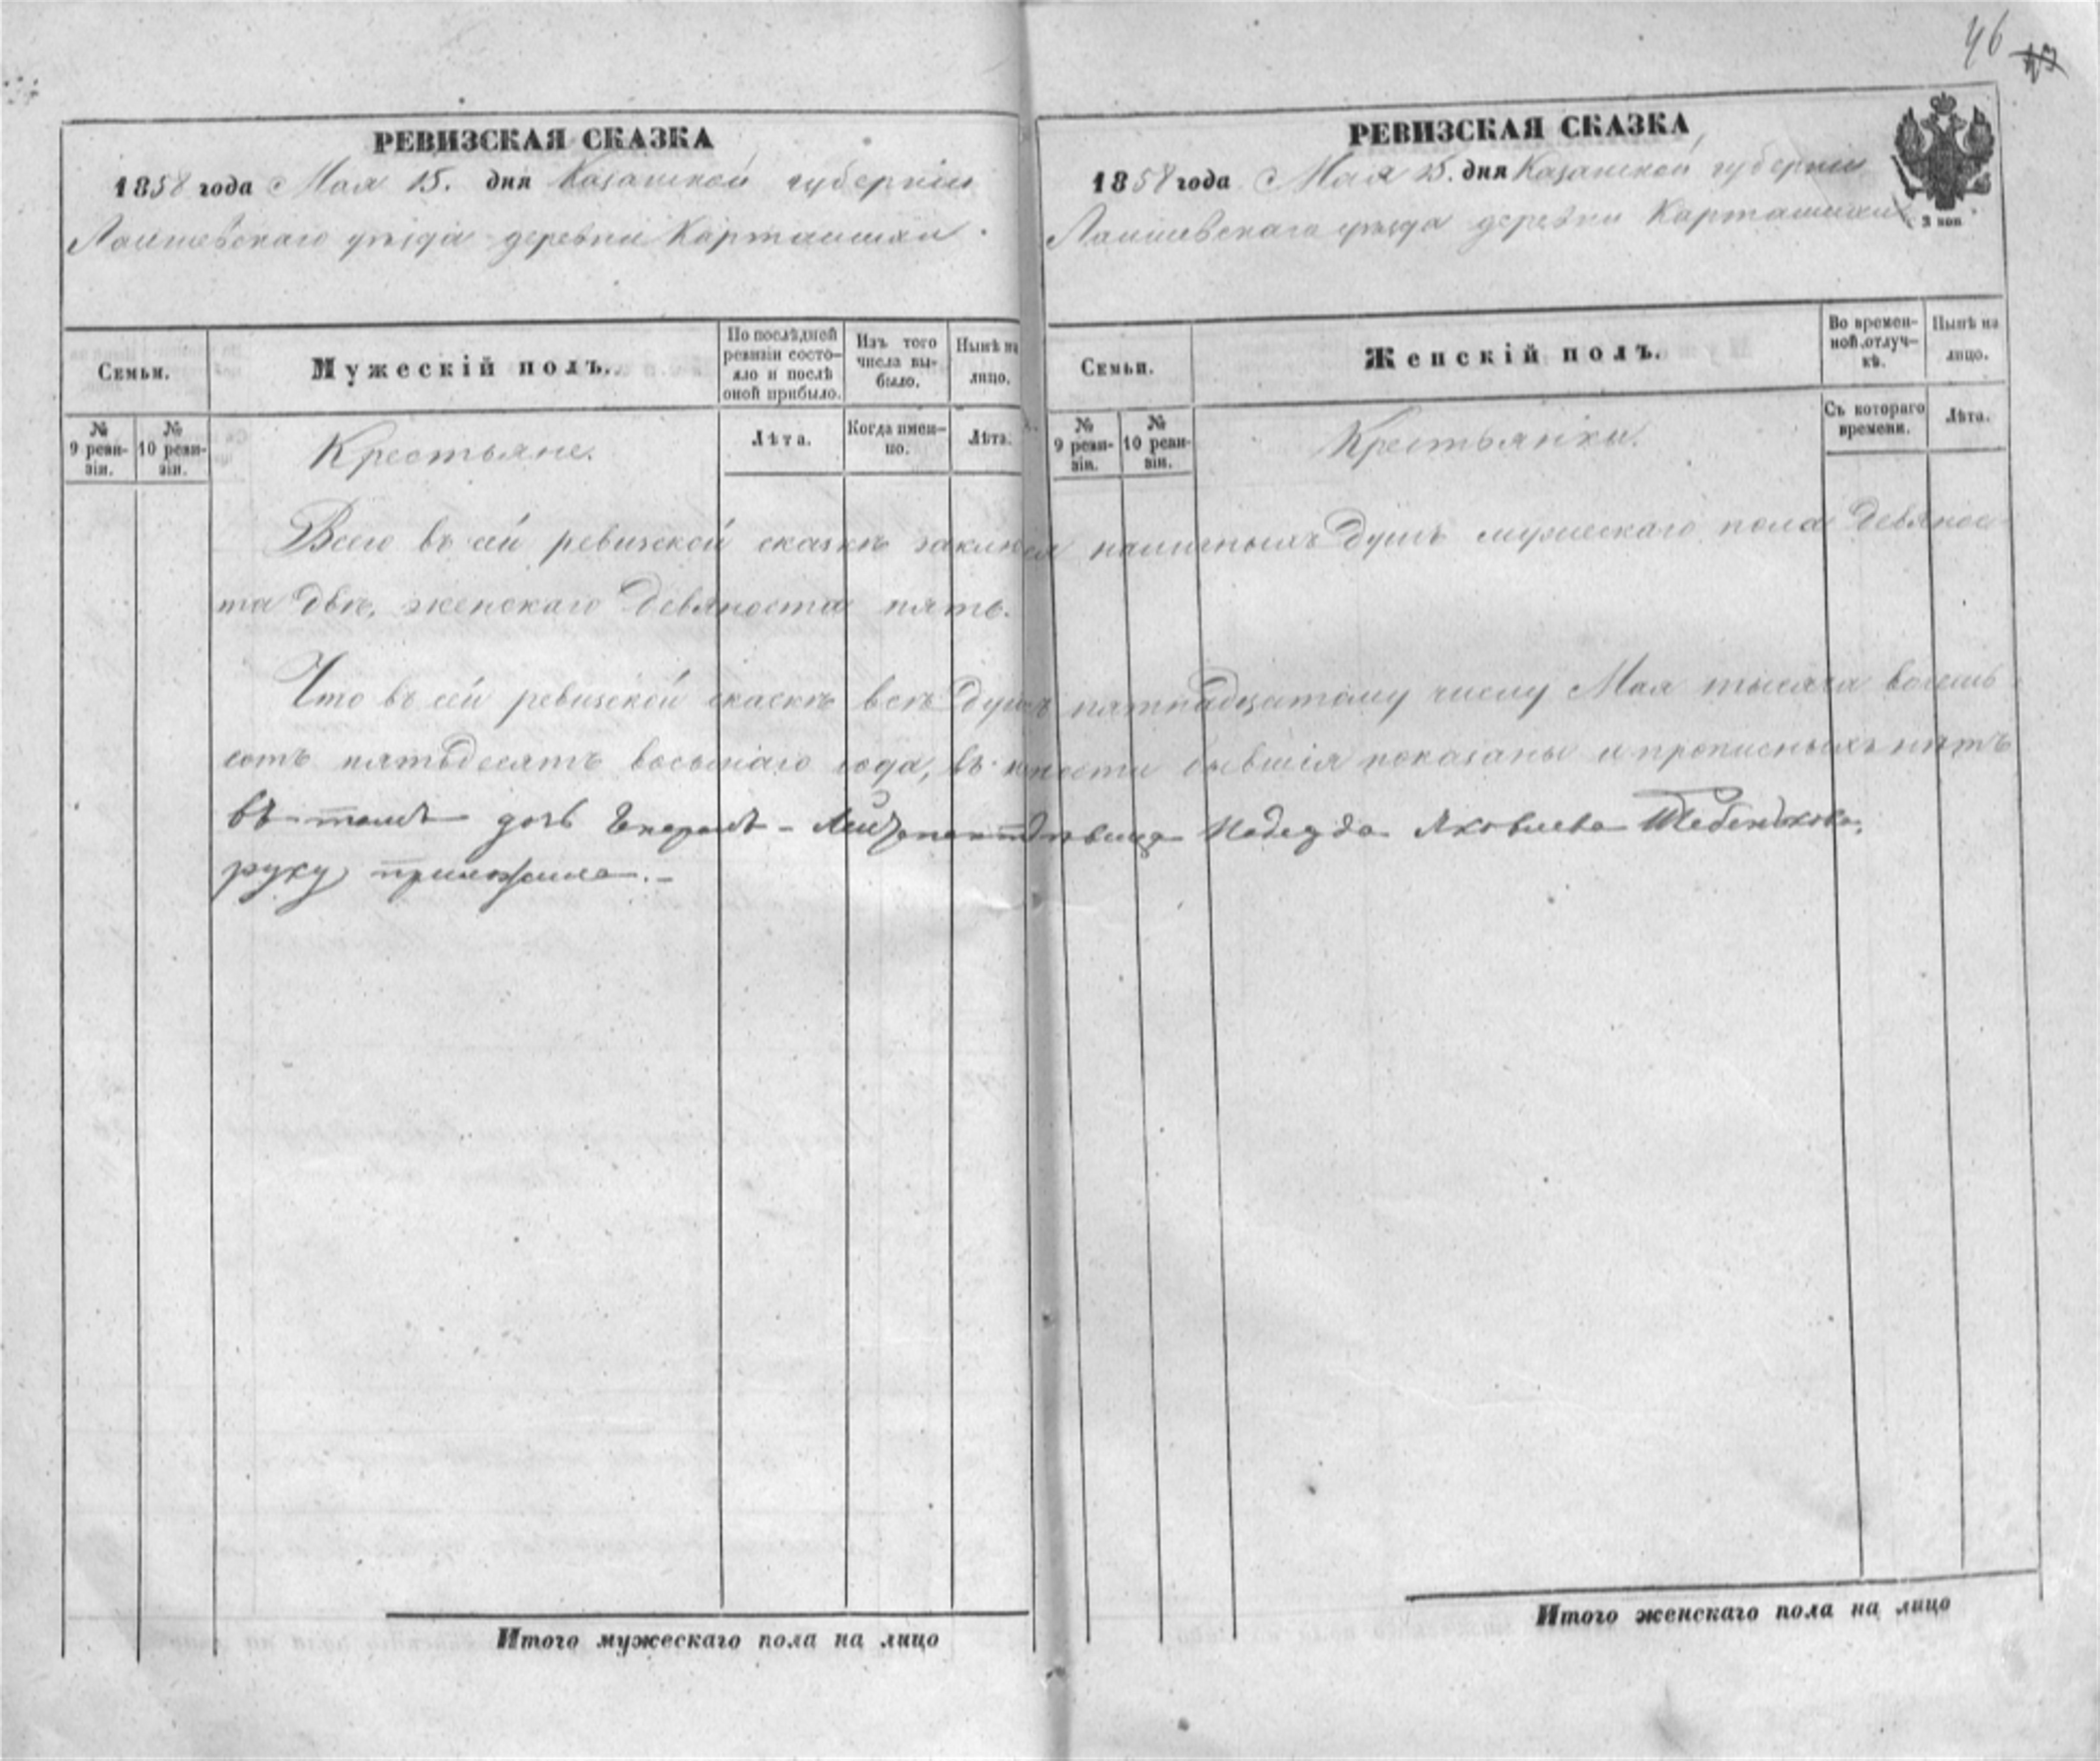 46
РЕВИЗСКАЯ СКАЗКА
1858 года Мая 15. дня Казанской губерніи
Лаишевскаго уѣзда деревни Карташихи.
Семьи.
Мужескій полъ.
По послѣдней ревизіи состояло и послѣ оной прибыло.
Изъ того числа выбыло.
Нынѣ на лицо.
№ 9 ревизіи.
№ 10 ревизіи.
Крестьяне.
Лѣта.
Когда именно.
Лѣта.
РЕВИЗСКАЯ СКАЗКА
1858 года Мая 15. дня Казанской губерніи
Лаишевскаго уѣзда деревни Карташихи
3 коп
Семьи.
Женскій полъ.
Во временной отлучкѣ.
Нынѣ на лицо.
№ 9 ревизіи.
№ 10 ревизіи.
Крестьянки.
Съ котораго времени.
Лѣта.
Всего въ сей ревизской сказкѣ наличныхъ душъ мужескаго пола девянос-
та двѣ, женскаго девяноста пять.
Что въ сей ревизской сказкѣ всѣ души пятнадцатому числу Мая тысяча восемь
сотъ пятьдесятъ восьмаго года, въ бывшія показаны и прописныхъ нѣтъ
въ томъ дочь Генералъ-Лейтенанта дѣвица Надежда Яковлева Шебенькова,
руку приложила.-
Итого мужескаго пола на лицо
Итого женскаго пола на лицо